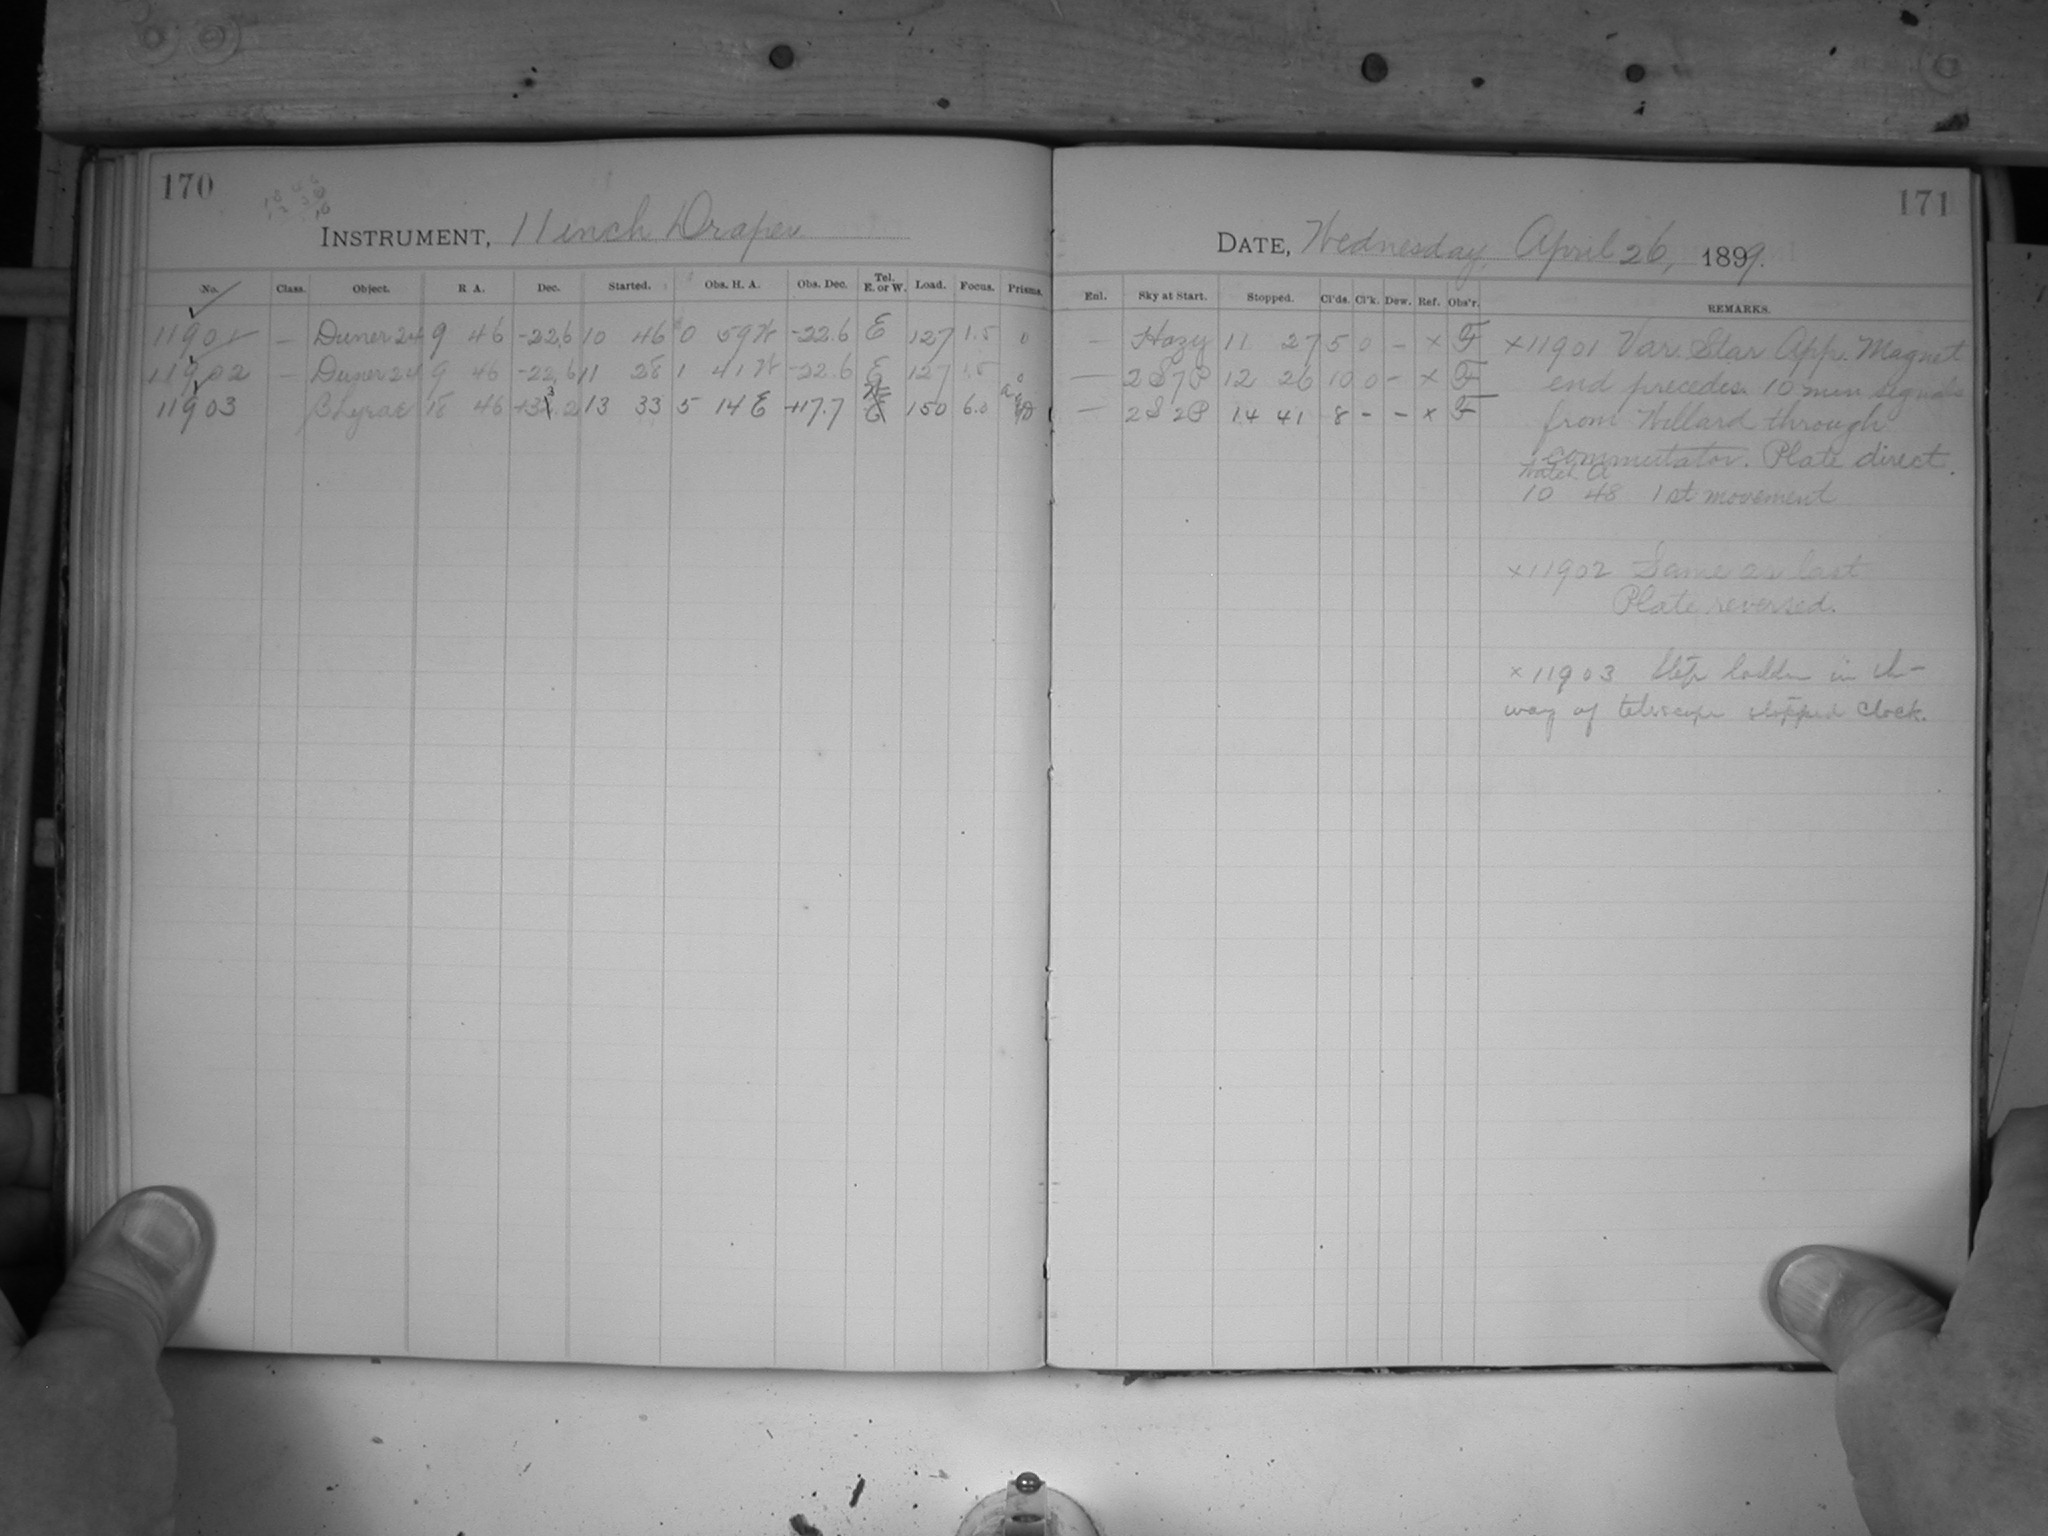 170
INSTRUMENT, 11 inch Draper
No. Class. Object. R A. Dec. Started. Obs. H. A. Obs. Dec. Tel. E. or W. Load. Focus. Prisms.
11901 — Duner 24 9 46 -22.6 10 46 0 59 W -22.6 E 127 1.5 0
11902 — Duner 24 9 46 -22.6 11 28 1 41 W -22.6 E 127 1.5 0
11903 β Lyrae 18 46 13 33 5 14 E +17.7 150 6.0
171
DATE, Wednesday, April 26, 1899.
Enl. Sky at Start. Stopped. Cl'ds. Cl'k. Dew. Ref. Obs'r. REMARKS.
— Hazy 11 27 5 0 — × F
— 2S7P 12 26 10 0 - × F
— 2S2P 14 41 8 - - × F
×11901 Var. Star App. Magnet
end precedes. 10 min signals
from Willard through
commutator. Plate direct.
Watch A
10 48 1st movement
×11902 Same as last
Plate reversed.
×11903 Step ladder in th-
way of telescope stopped clock.